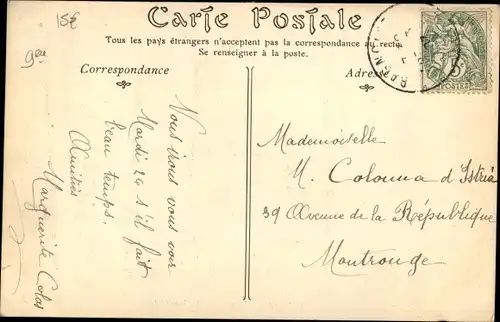 15€
Carte Postale
Tous les pays étrangers n'acceptent pas la correspondance au recto.
Se renseigner à la poste.
Correspondance
Adresse
Nous irons vous voir
Mardi 24 s'il fait
beau temps.
Amitiés
Marguerite Colas
Mademoiselle
M. Colonna d'Istria
39 Avenue de la République
Montrouge
5
POSTES